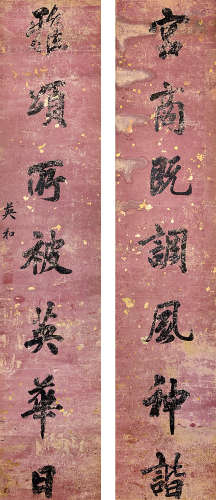 宫商既調風神諧
雅頌所被英華日
英和